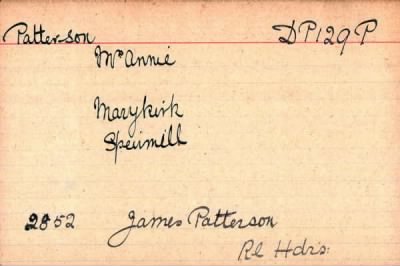 Patterson DP129P
Mrs Annie
Marykirk
Spenmill
2852 James Patterson
Rl Hdrs.